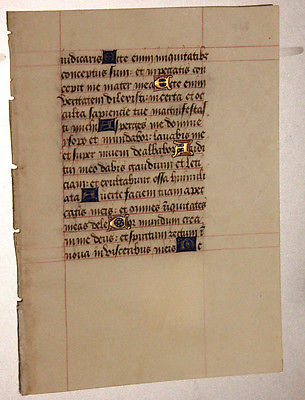 iudicaris Ecce enim iniquitatib
conceptus sum: et in peccatis con
cepit me mater mea Ecce enim
veritatem dilexisti: incerta et oc
culta sapientie tue manifestas
ti michi Asperges me domine
ysopo et mundabor: lavabis me
et super nivem dealbabor Audi
tui meo dabis gaudium et leti
ciam: et exultabunt ossa humili
ata Averte faciem tuam a pec
catis meis: et omnes iniquitates
meas dele Cor mundum crea
in me deus: et spiritum rectum in
nova in visceribus meis Ne